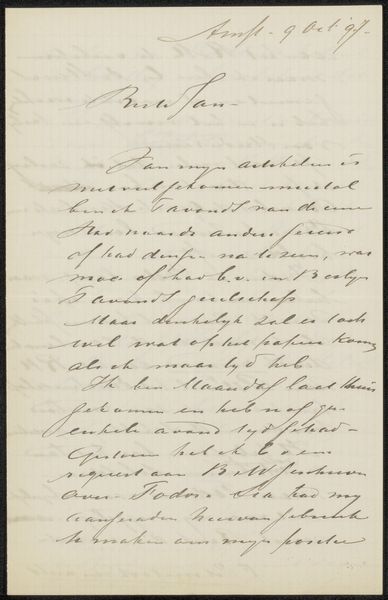 Amst. 9 Oct. 97.
Beste Jan -
Van mijn artikelen is
niet veel gekomen meestal
ben ik 's avonds van de eene
stad naar de andere
of had na te zien, was
moe of had b.v. in Berlijn
's avonds gezelschap
Maar denkelijk zal er toch
wel wat op het papier komen
als ik maar tijd heb
Ik ben Maandag laat thuis
gekomen en heb nog geen
enkele avond tijd gehad -
Gisteren heb ik een
request aan B & W geschreven
over Fodor had mij
aangeraden hiervan gebruik
te maken om mijn positie